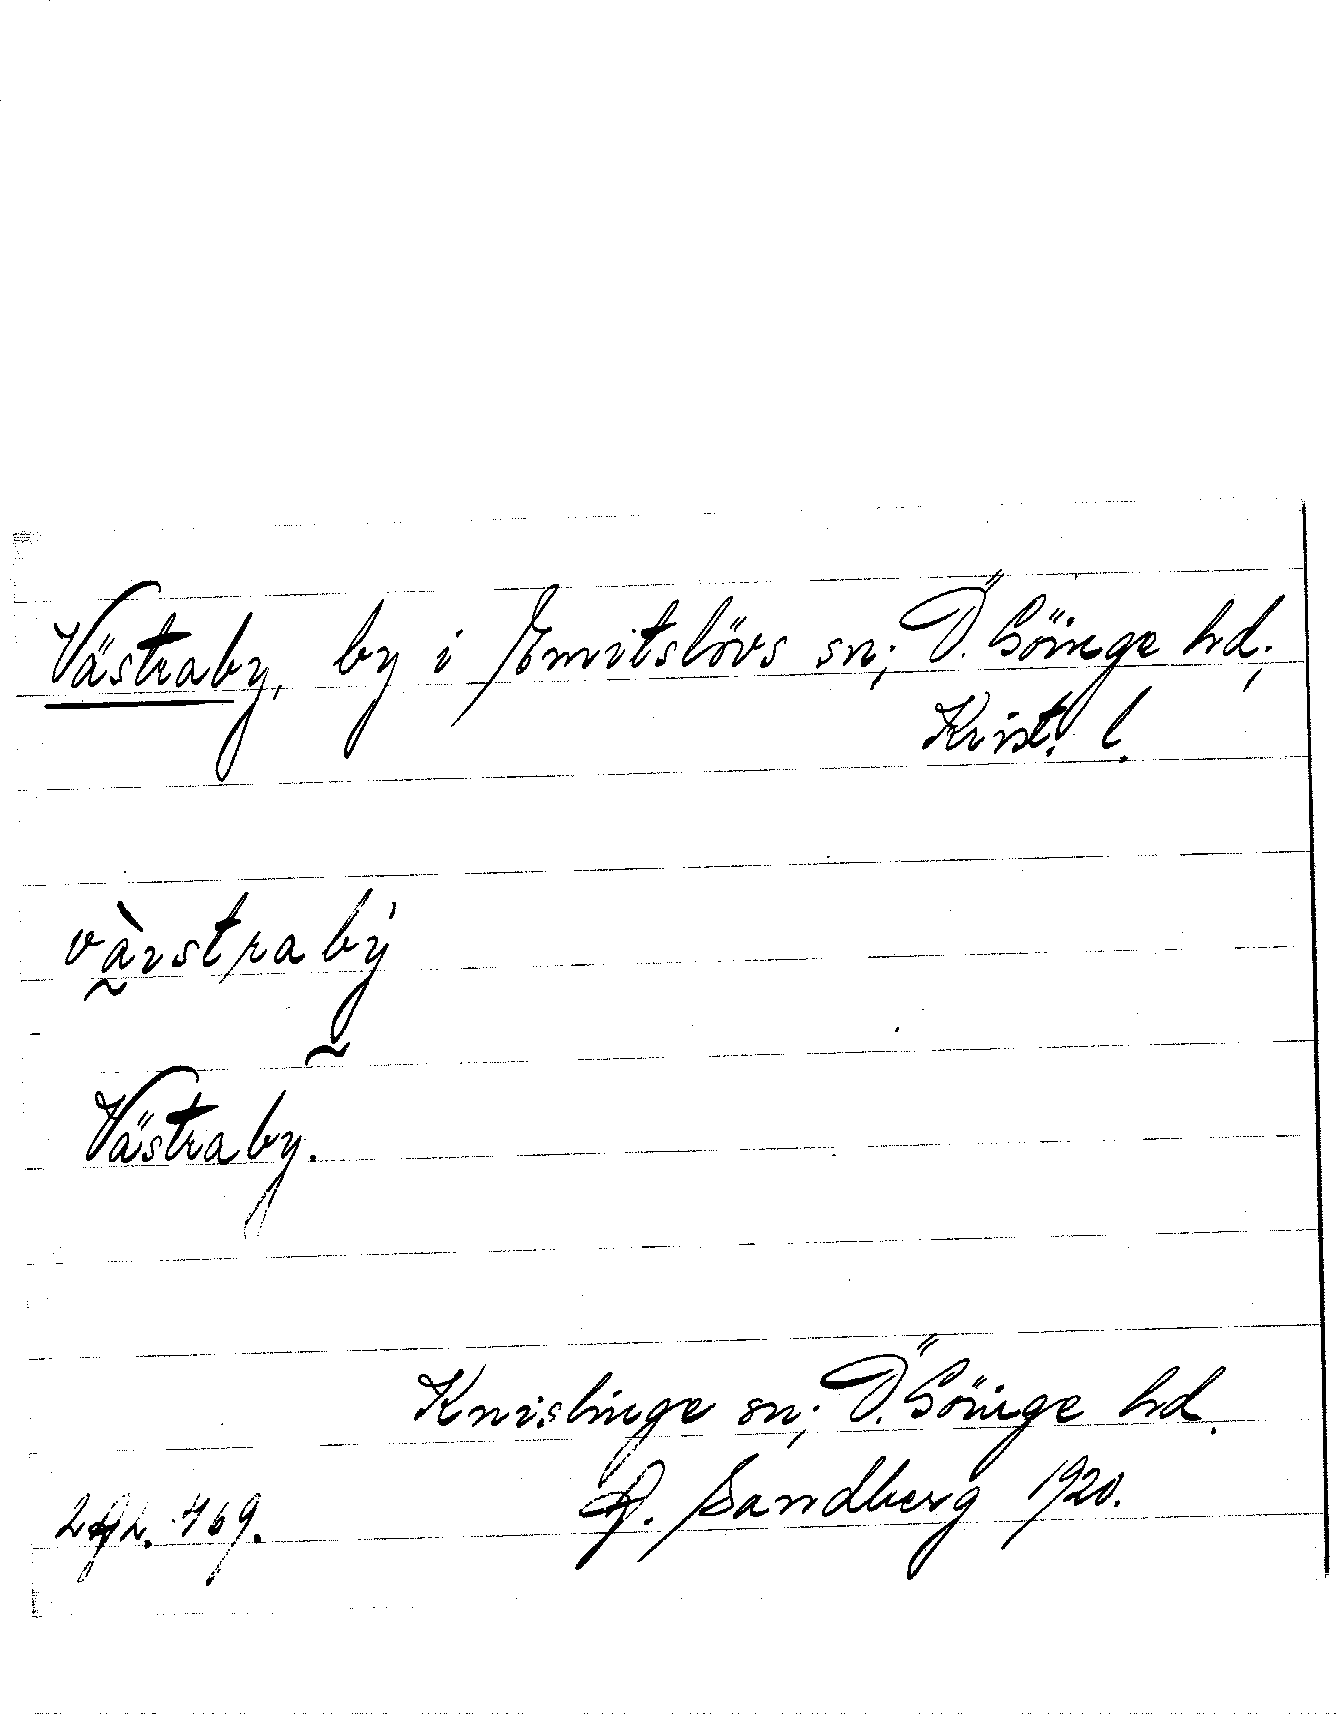 Västraby, by i Emitslövs sn; Ö. Göinge hd;
Krist. l.
vàrstrabý
Västraby.
Knislinge sn; Ö. Göinge hd.
Sandberg 1920.
469.